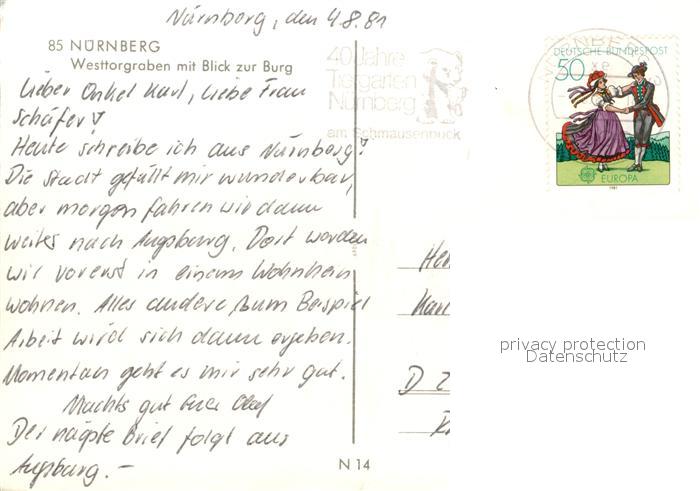 Nürnberg, den 4.8.81
85 NÜRNBERG
Westtorgraben mit Blick zur Burg
Lieber Onkel Karl, liebe Frau
Schäfer!
Heute schreibe ich aus Nürnberg!
Die Stadt gefällt mir wunderbar,
aber morgen fahren wir dann
weiter nach Augsburg. Dort werden
wir vorerst in einem Wohnheim
wohnen. Alles andere, zum Beispiel
Arbeit wird sich dann ergeben.
Momentan geht es mir sehr gut.
Machts gut Euer Olaf
Der nächste Brief folgt aus
Augsburg. –
N 14
40 Jahre
Tiergarten
Nürnberg
am Schmausenbuck
DEUTSCHE BUNDESPOST
50
EUROPA
1981
D 2
privacy protection
Datenschutz